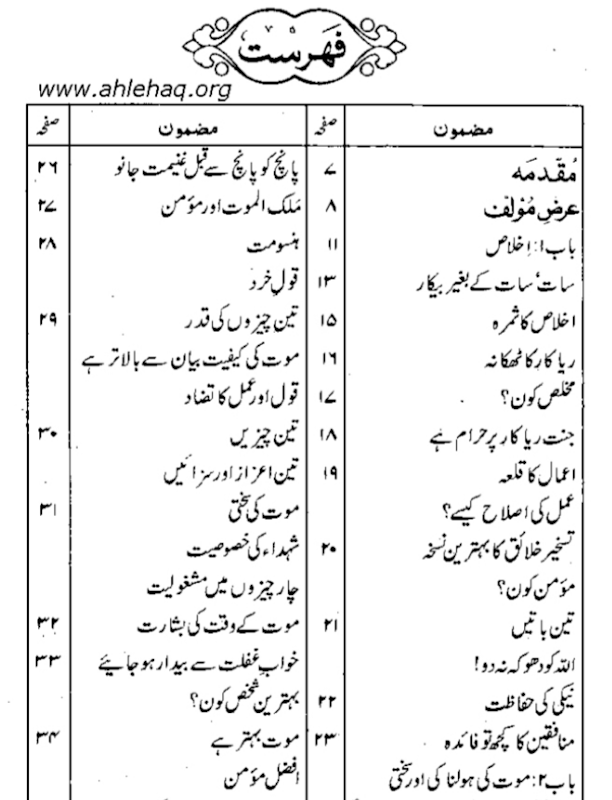 فہرست
www.ahlehaq.org
مضمون صفحہ
مُقدّمَہ ۷
عرضِ مُولّف ۸
باب ۱: اِخلاص ۱۱
سات، سات کے بغیر بیکار ۱۳
اخلاص کا ثمرہ ۱۵
ریا کار کا ٹھکانہ ۱۶
مخلص کون؟ ۱۷
جنت ریا کار پر حرام ہے ۱۸
اعمال کا قلعہ ۱۹
عمل کی اصلاح کیسے؟
تسخیر خلائق کا بہترین نسخہ ۲۰
مؤمن کون؟
تین باتیں ۲۱
اللہ کو دھوکہ نہ دو!
نیکی کی حفاظت ۲۲
منافقین کا کچھ تو فائدہ ۲۳
باب ۲: موت کی ہولناکی اور سختی
مضمون صفحہ
پانچ کو پانچ سے قبل غنیمت جانو ۲۶
مَلک الموت اور مؤمن ۲۷
ہنسو مت ۲۸
قولِ خرد
تین چیزوں کی قدر ۲۹
موت کی کیفیت بیان سے بالاتر ہے
قول اور عمل کا تضاد
تین چیزیں ۳۰
تین اعزاز اور سزائیں
موت کی سختی ۳۱
شہداء کی خصوصیت
چار چیزوں میں مشغولیت
موت کے وقت کی بشارت ۳۲
خوابِ غفلت سے بیدار ہو جایئے ۳۳
بہترین شخص کون؟
موت بہتر ہے ۳۴
افضل مؤمن